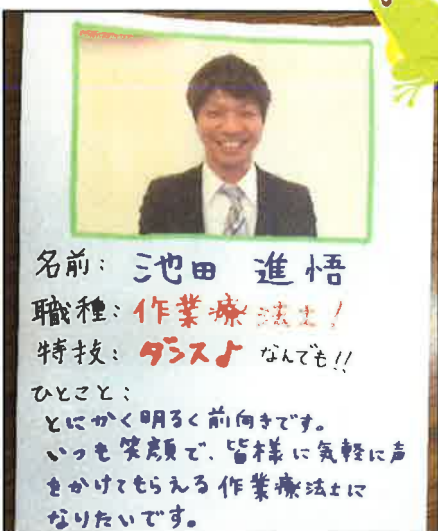 名前: 池田 進悟
職種: 作業療法士!
特技: ダンス♪ なんでも!!
ひとこと:
とにかく明るく前向きです。
いつも笑顔で、皆様に気軽に声
をかけてもらえる作業療法士に
なりたいです。